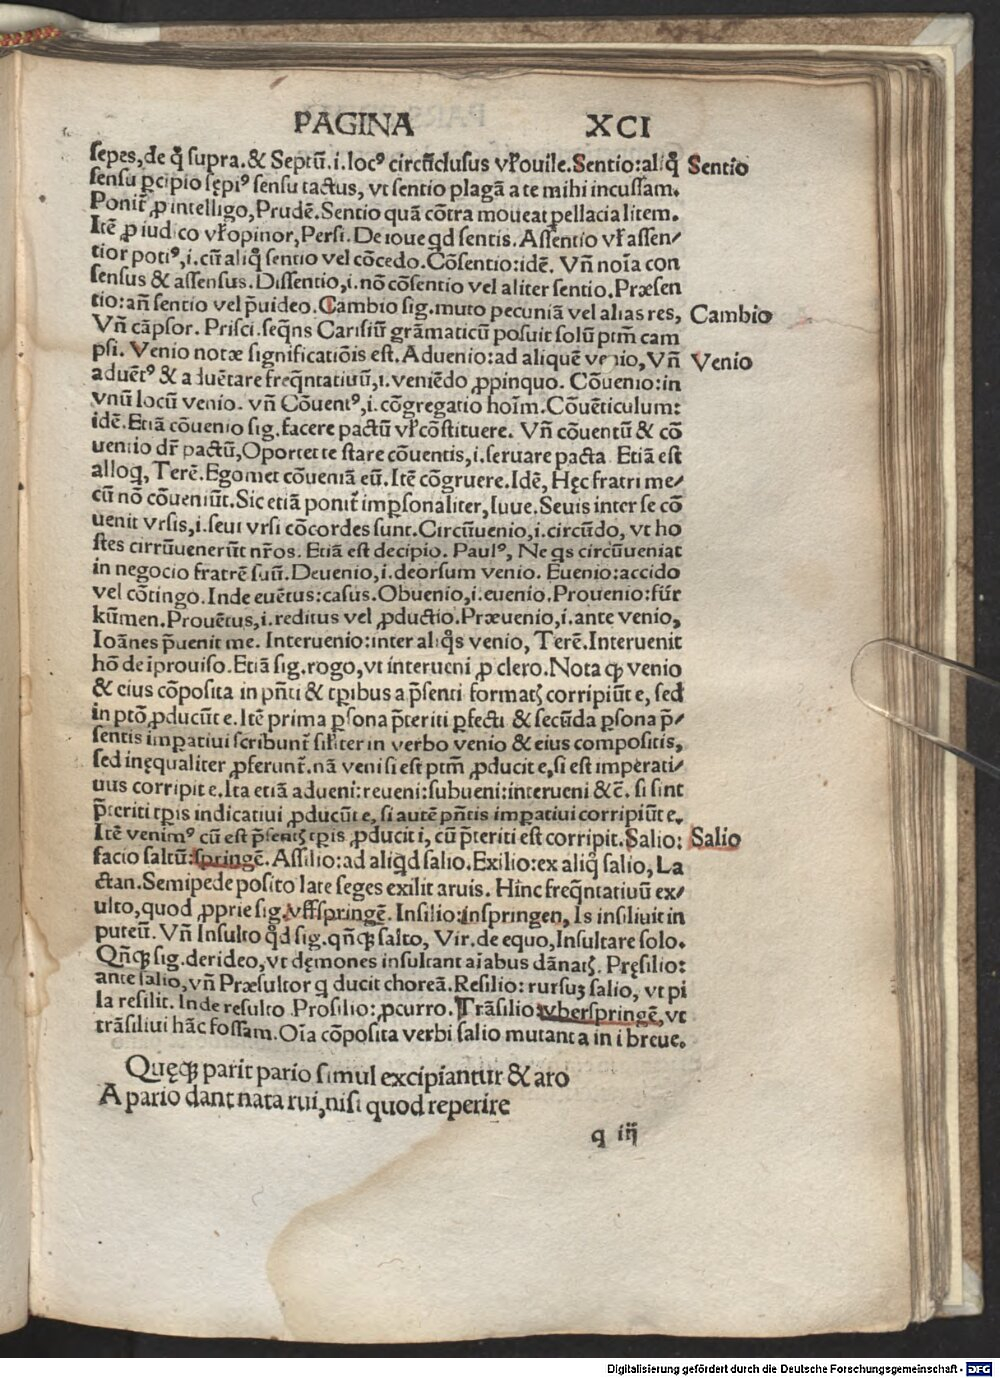 PAGINA XCI
sepes, de ꝙ supra. & Septū. i. locꝰ circūclusus vꝉouile. Sentio: aliꝙ Sentio
sensu ꝑcipio sępiꝰ sensu tactus, vt sentio plagā a te mihi incussam.
Ponit̄ ꝓ intelligo, Prudē. Sentio quā cōtra moueat pellacia litem.
Itē ꝓ iudico vꝉopinor, Persi. De ioue qd sentis. Assentio vꝉ assen/
tior potiꝰ, i. cū aliꝙ sentio vel cōcedo. Cōsentio: idē. Vñ noīa con
sensus & assensus. Dissentio, i. nō cōsentio vel aliter sentio. Præsen
tio: añ sentio vel p̄uideo. Cambio sig. muto pecuniā vel alias res, Cambio
Vñ cāpsor. Prisci. seq̄ns Carisiū grāmaticū posuit solū ptm̄ cam
psi. Venio notæ significatiōis est. Aduenio: ad aliquē venio, Vñ Venio
aduētꝰ & aduētare freq̄ntatiuū, i. veniēdo ꝓpinquo. Cōuenio: in
vnū locū venio. vñ Cōuentꝰ, i. cōgregatio hoīm. Cōuēticulum:
idē. Etiā cōuenio sig. facere pactū vꝉ cōstituere. Vñ cōuentū & cō
uentio dr̄ pactū, Oportet te stare cōuentis, i. seruare pacta. Etiā est
alloq, Terē. Egomet cōueniā eū. Itē cōgruere. Idē, Hęc fratri me/
cū nō cōueniūt. Sic etiā ponit̄ imꝑsonaliter, Iuue. Seuis inter se cō
uenit vrsis, i. seui vrsi cōcordes sunt. Circūuenio, i. circūdo, vt ho
stes cirrūuenerūt nr̄os. Etiā est decipio. Paulꝰ, Ne qs circūueniat
in negocio fratrē suū. Deuenio, i. deorsum venio. Euenio: accido
vel cōtingo. Inde euētus: casus. Obuenio, i. euenio. Prouenio: für
kūmen. Prouētus, i. reditus vel ꝓductio. Præuenio, i. ante venio,
Ioānes p̄uenit me. Interuenio: inter aliqs venio, Terē. Interuenit
hō de iprouiso. Etiā sig. rogo, vt interueni ꝓ clero. Nota ꝙ venio
& eius cōposita in pn̄ti & tꝑibus a p̄senti formatꝫ corripiūt e, sed
in ptō ꝓducūt e. Itē prima ꝑsona p̄teriti ꝑfecti & secūda ꝑsona p̄/
sentis imꝑatiui scribunt̄ siꝉiter in verbo venio & eius compositis,
sed inęqualiter ꝓferunt̄. nā veni si est ptm̄ ꝓducit e, si est imperati/
uus corripit e. Ita etiā adueni: reueni: subueni: interueni &c̄. si sint
p̄teriti tꝑis indicatiui ꝓducūt e, si autē pn̄tis imꝑatiui corripiūt e.
Itē venimꝰ cū est p̄sentꝫ tꝑis ꝓducit i, cū p̄teriti est corripit. Salio: Salio
facio saltū: springē. Assilio: ad aliqd salio. Exilio: ex aliꝙ salio, La
ctan. Semipede posito late seges exilit aruis. Hinc freq̄ntatiuū ex/
ulto, quod ꝓprie sig. vffspringē. Insilio: inspringen, Is insiliuit in
puteū. Vñ Insulto qd sig. qñꝙ salto, Vir. de equo, Insultare solo.
Qñꝙ sig. derideo, vt dęmones insultant aīabus dānatꝫ. Pręsilio:
ante salio, vñ Præsultor q ducit choreā. Resilio: rursuꝫ salio, vt pi
la resilit. Inde resulto. Prosilio: ꝓcurro. Trāsilio: vberspringē, vt
trāsiliui hāc fossam. Oīa cōposita verbi salio mutant a in i breue.
Quęꝙ parit pario simul excipiantur & aro
A pario dant nata rui, nisi quod reperire
q iij
Digitalisierung gefördert durch die Deutsche Forschungsgemeinschaft - DFG